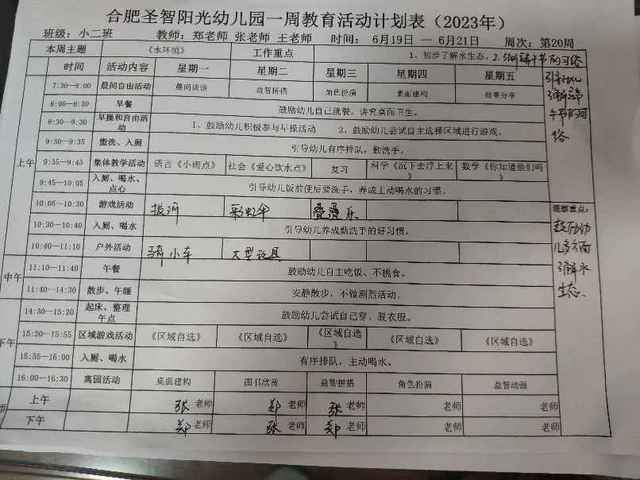 合肥圣智阳光幼儿园一周教育活动计划表（2023年）
班级：小二班 教师：郑老师 张老师 王老师 时间： 6月19日 — 6月21日 周次：第20周
本周主题 《水环境》 工作重点 1、初步了解水生态。2.
时间 活动内容 星期一 星期二 星期三 星期四 星期五
7:30—8:00 晨间自由活动 晨间谈话 益智拼搭 角色扮演 桌面建构 故事分享
8:00—8:30 早餐 鼓励幼儿自己就餐，讲究桌面卫生。
8:30—9:30 早操和自由活动 1、鼓励幼儿积极参与早操活动 2、鼓励幼儿尝试自主选择区域进行游戏。
9:30—9:35 盥洗、入厕 引导幼儿有序排队，勤洗手。
上午 9:35—9:45 集体教学活动 语言《小雨点》 社会《爱心饮水点》 复习 科学《沉下去浮上来》 数学《你知道他们吗》
9:45—10:05 入厕、喝水、点心 引导幼儿饭前便后要洗手，养成主动喝水的习惯。
10:05—10:30 游戏活动 彩虹伞 叠叠乐
10:30—10:40 入厕、喝水 引导幼儿养成勤洗手的好习惯。
观察重点：
10:40—11:10 户外活动 骑小车 大型玩具
中午 11:10—11:40 午餐 鼓励幼儿自主吃饭、不挑食。
11:40—14:30 散步、午睡 安静散步，不做剧烈活动。
14:30—15:20 起床、整理午点 鼓励幼儿尝试自己穿、脱衣服。
下午 15:20—15:55 区域游戏活动 《区域自选》 《区域自选》 《区域自选》 《区域自选》 《区域自选》
15:55—16:00 入厕、喝水 有序排队、主动喝水。
16:00—16:30 离园活动 桌面建构 图书欣赏 益智拼搭 角色扮演 益智游戏
上午 张老师 郑老师 张老师 老师 老师
下午 郑老师 张老师 郑老师 老师 老师